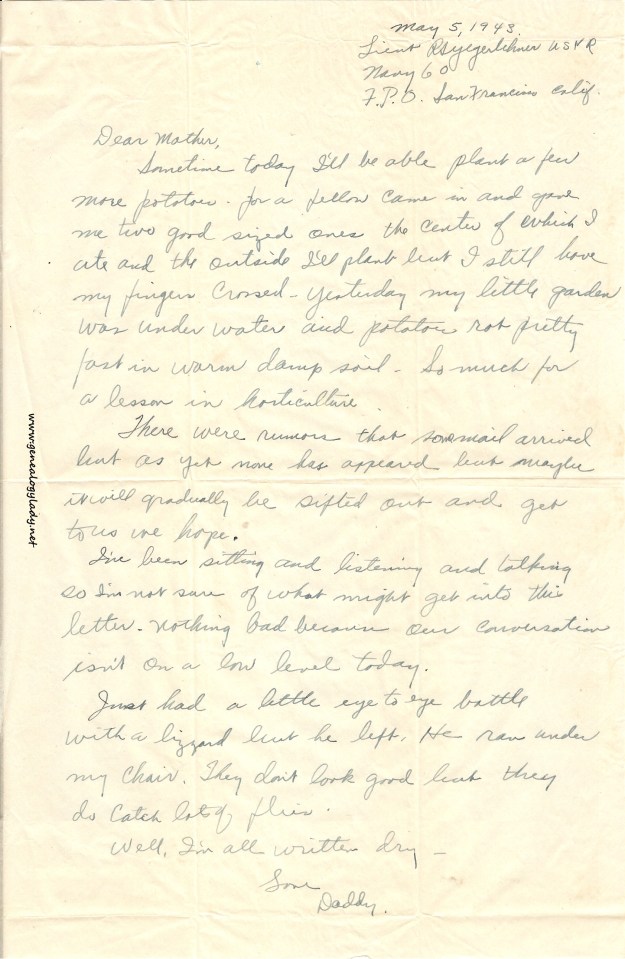 May 5, 1943.
Lieut R S Yegerlehner USNR
Navy 60
F.P.O. San Francisco Calif.
Dear Mother,
Sometime today I'll be able plant a few
more potatoes. for a fellow came in and gave
me two good sized ones the center of which I
ate and the outside I'll plant but I still have
my fingers crossed - yesterday my little garden
was under water and potatoes rot pretty
fast in warm damp soil - So much for
a lesson in horticulture.
There were rumors that some mail arrived
but as yet none has appeared but maybe
it will gradually be sifted out and get
to us we hope.
I've been sitting and listening and talking
so I'm not sure of what might get into this
letter - nothing bad because our conversation
isn't on a low level today.
Just had a little eye to eye battle
with a lizzard but he left. He ran under
my chair. They don't look good but they
do catch lots of flies.
Well, I'm all written dry -
Love
Daddy.
www.genealogylady.net